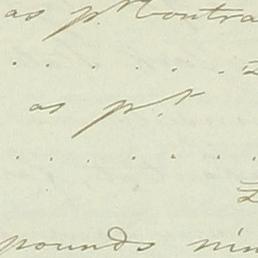 as pr Contra
. . . . . .
as pr
. . . . . .
pounds nin